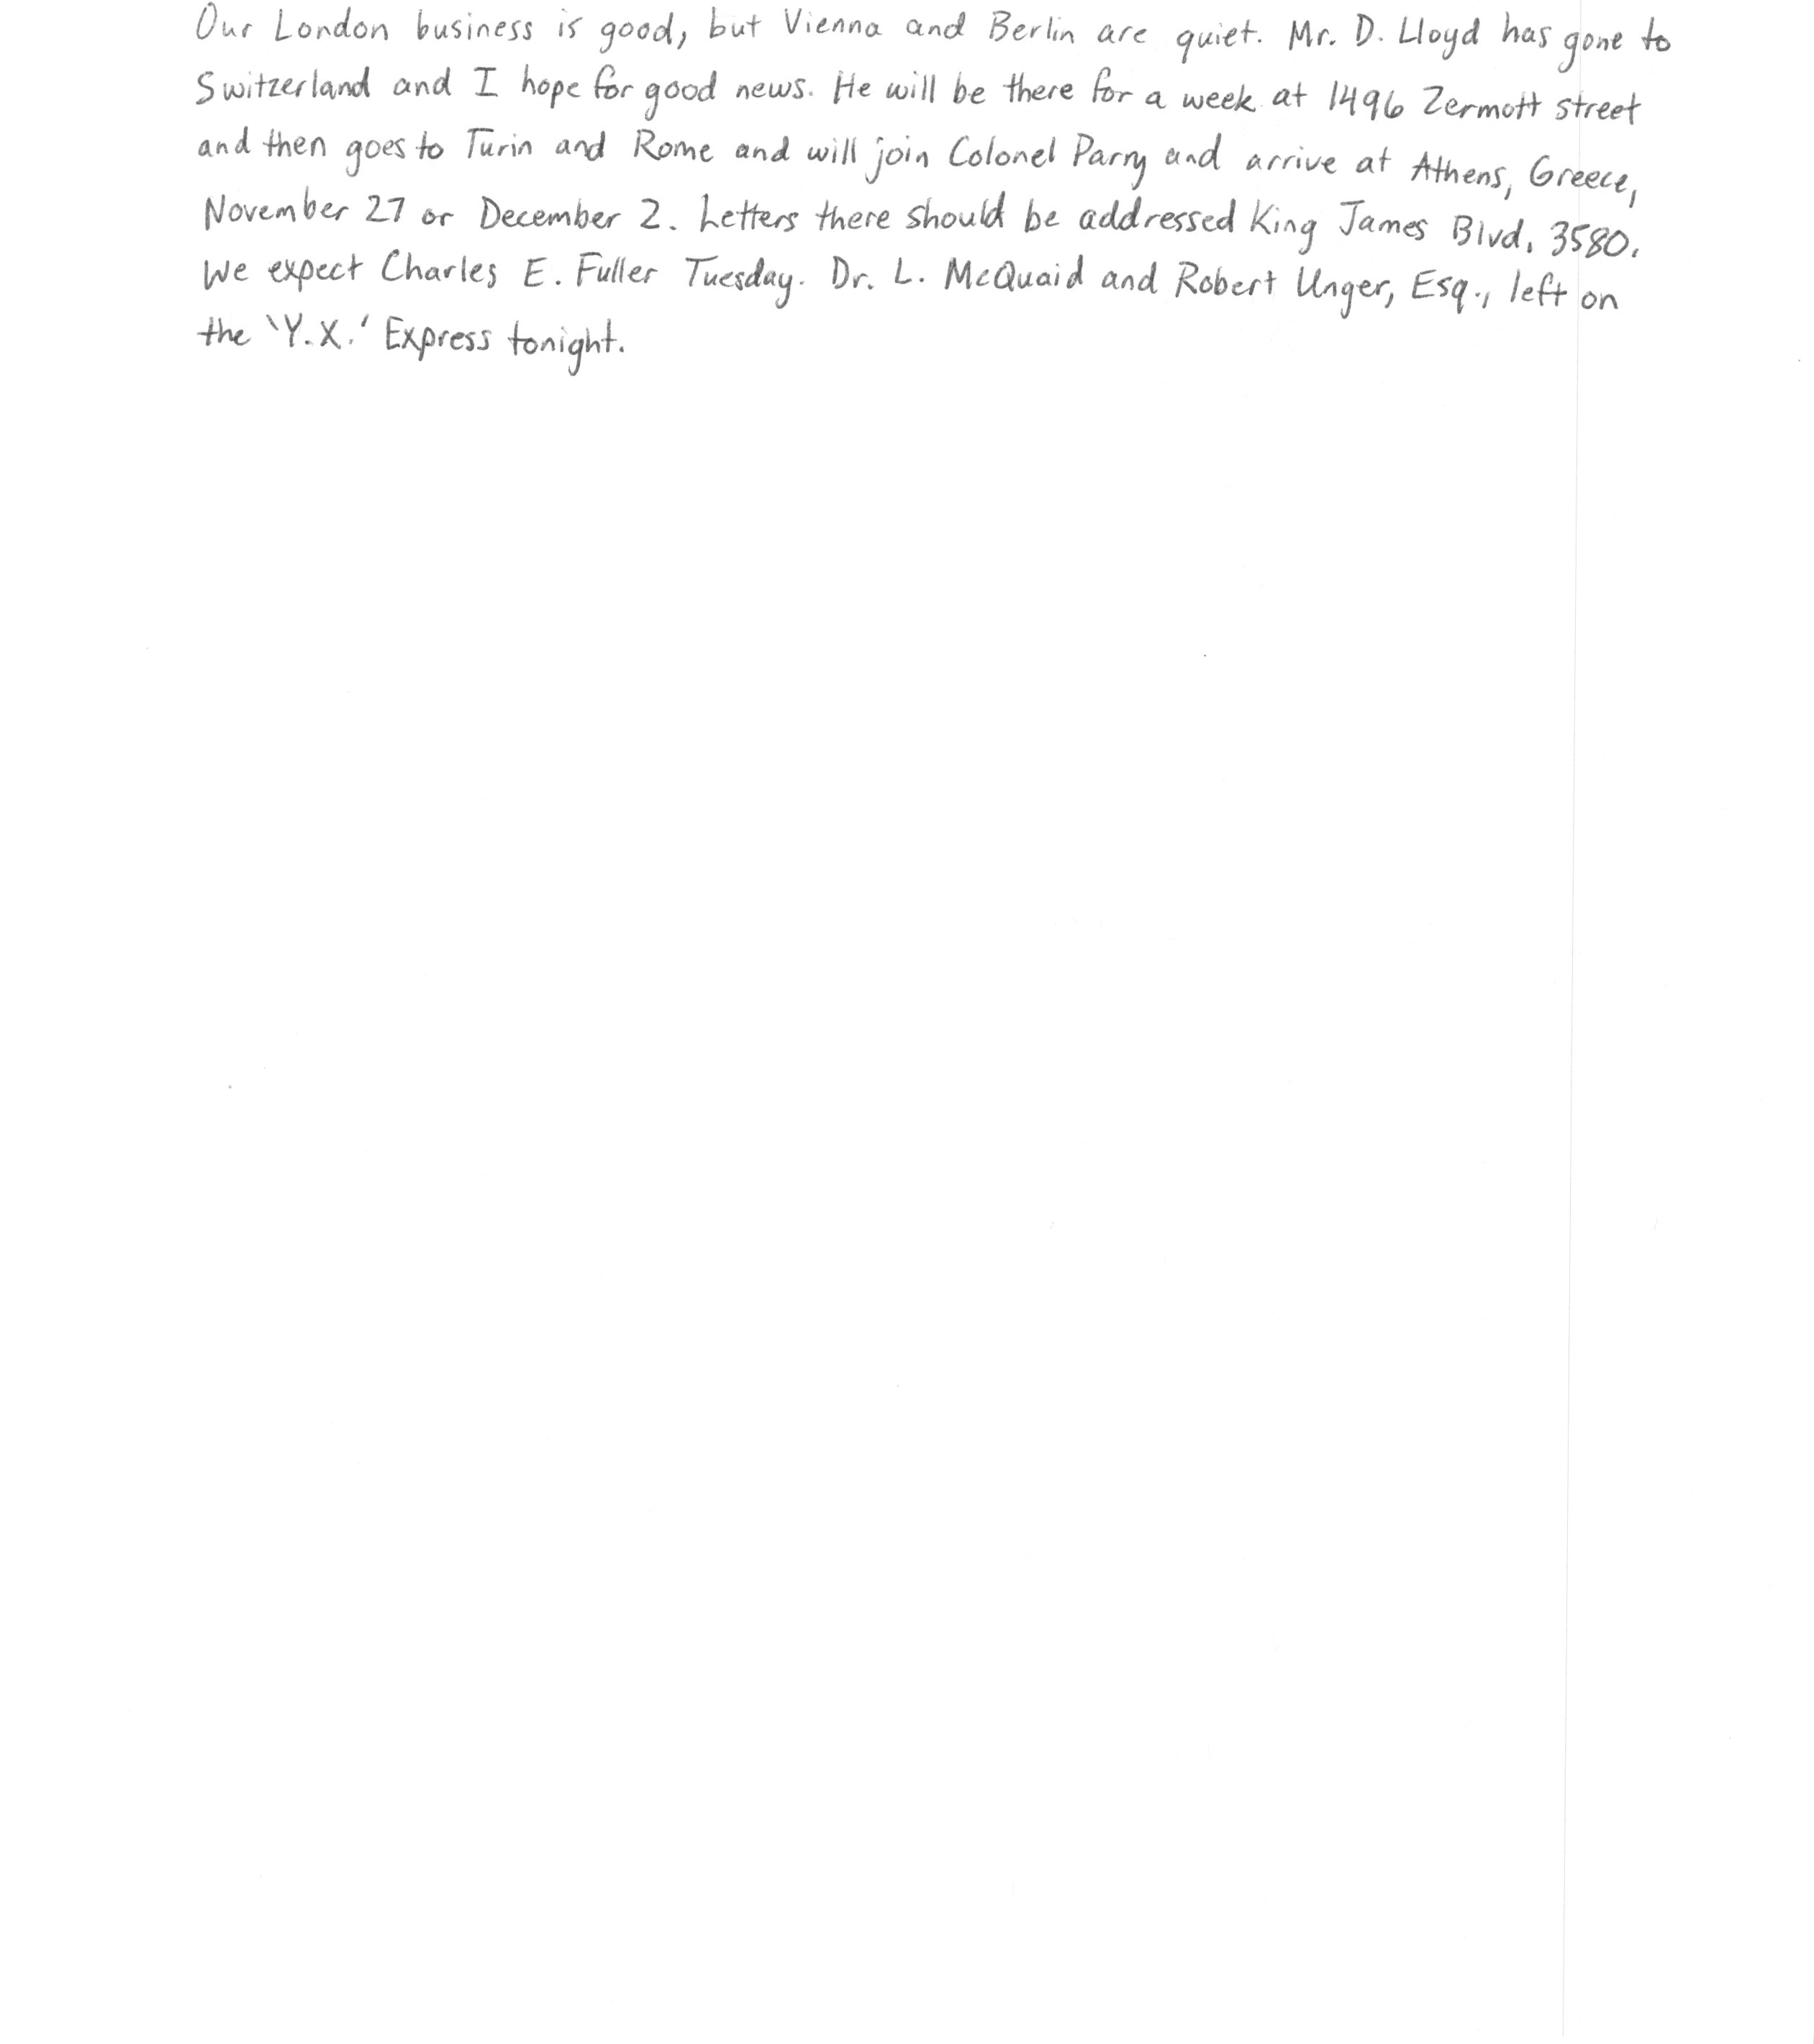 Our London business is good, but Vienna and Berlin are quiet. Mr. D. Lloyd has gone to
Switzerland and I hope for good news. He will be there for a week at 1496 Zermott street
and then goes to Turin and Rome and will join Colonel Parry and arrive at Athens, Greece,
November 27 or December 2. Letters there should be addressed King James Blvd. 3580.
We expect Charles E. Fuller Tuesday. Dr. L. McQuaid and Robert Unger, Esq., left on
the 'Y.X.' Express tonight.